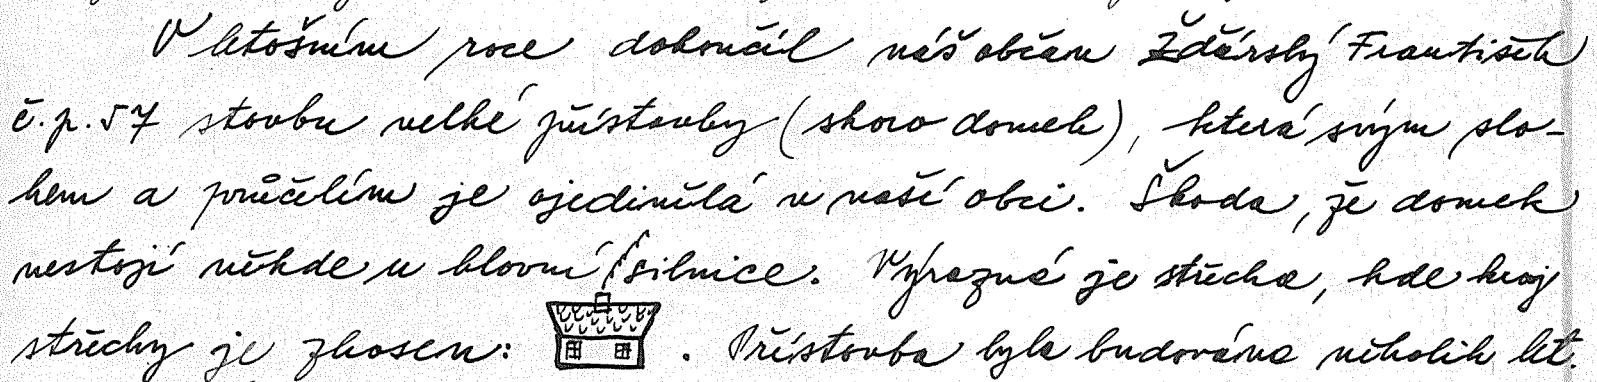 V letošním roce dokončil náš občan Žďárský František
č.p. 57 stavbu velké přístavby (skoro domek), která svým slo-
hem a průčelím je ojedinělá v naší obci. Škoda, že domek
nestojí někde u hlavní silnice. Výrazná je střecha, kde kraj
střechy je zkosen: . Přístavba byla budována několik let.